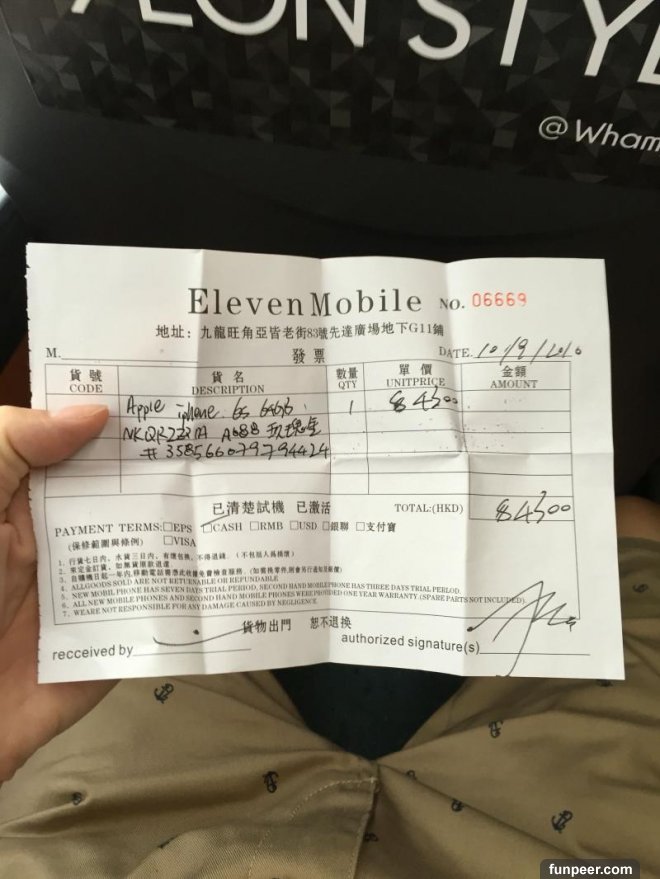 AEON STYLE
@ Wham
Eleven Mobile NO. 06669
地址: 九龍旺角亞皆老街83號先達廣場地下G11鋪
M. 發票 DATE. 10/9/2016
貨號 貨名 數量 單價 金額
CODE DESCRIPTION QTY UNITPRICE AMOUNT
Apple iphone 6s 64GB 1 $4300
NKQR2ZP/A A688 玫瑰金
# 358566079794424
已清楚試機 已激活 TOTAL:(HKD) $4300
PAYMENT TERMS: □EPS □CASH □RMB □USD □銀聯 □支付寶
(保修範圍與條例) □VISA
1. 行貨七日內, 水貨三日內, 有壞包換, 不得退錢. (不包括人為損壞)
2. 來定金訂貨, 如無貨則款退還.
4. ALLGOODS SOLD ARE NOT RETURNABLE OR REFUNDABLE
5. NEW MOBIL PHONE HAS SEVEN DAYS TRIAL PERIOD, SECOND HAND MOBILE PHONE HAS THREE DAYS TRIAL PERLOD.
6. ALL NEW MOBILE PHONES AND SECOND HAND MOBILE PHONES WERE PROVIDED ONE YEAR WARRANTY. (SPARE PARTS NOT INCLUDED)
7. WEARE NOT RESPONSIBLE FOR ANY DAMAGE CAUSED BY NEGLIGENCE
貨物出門 恕不退換
recceived by authorized signature(s)
funpeer.com